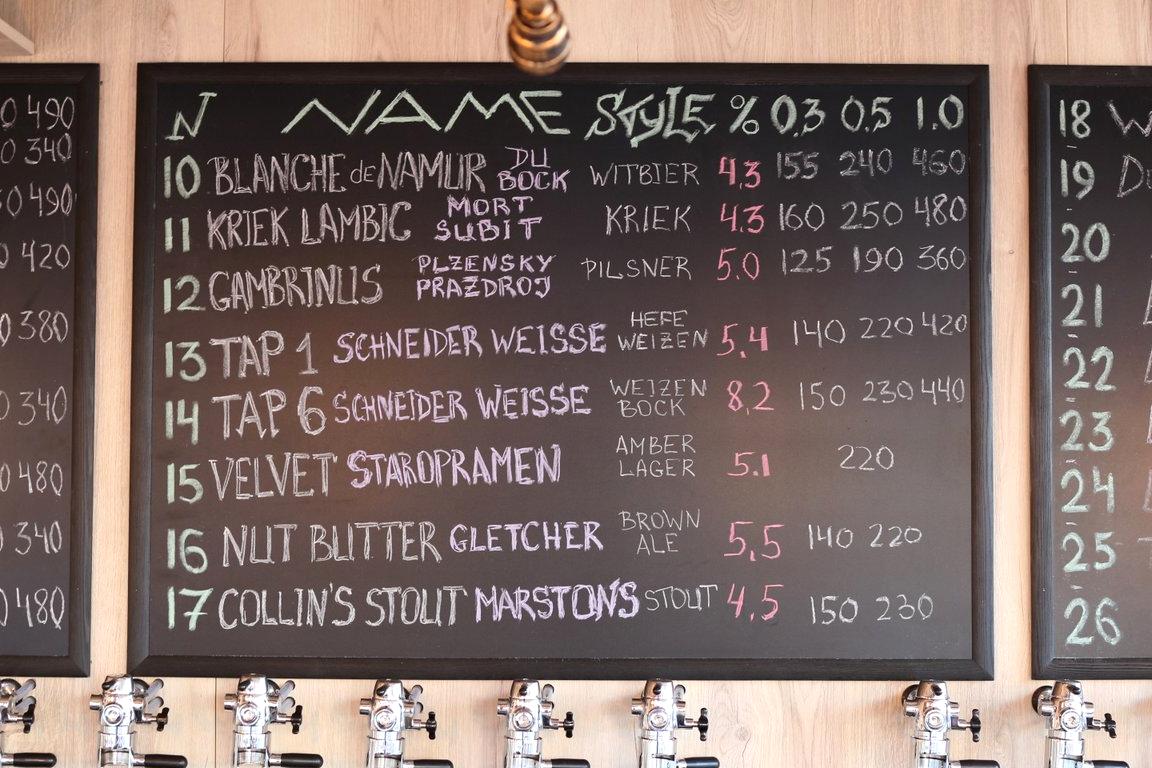 490
340
490
420
380
340
480
340
480
N NAME STYLE % 0.3 0.5 1.0
10 BLANCHE de NAMUR DU BOCK WITBIER 4.3 155 240 460
11 KRIEK LAMBIC MORT SUBIT KRIEK 4.3 160 250 480
12 GAMBRINUS PLZENSKY PRAZDROJ PILSNER 5.0 125 190 360
13 TAP 1 SCHNEIDER WEISSE HEFE WEIZEN 5.4 140 220 420
14 TAP 6 SCHNEIDER WEISSE WEIZEN BOCK 8,2 150 230 440
15 VELVET STAROPRAMEN AMBER LAGER 5.1 220
16 NUT BUTTER GLETCHER BROWN ALE 5,5 140 220
17 COLLIN'S STOUT MARSTON'S STOUT 4,5 150 230
18
19
20
21
22
23
24
25
26